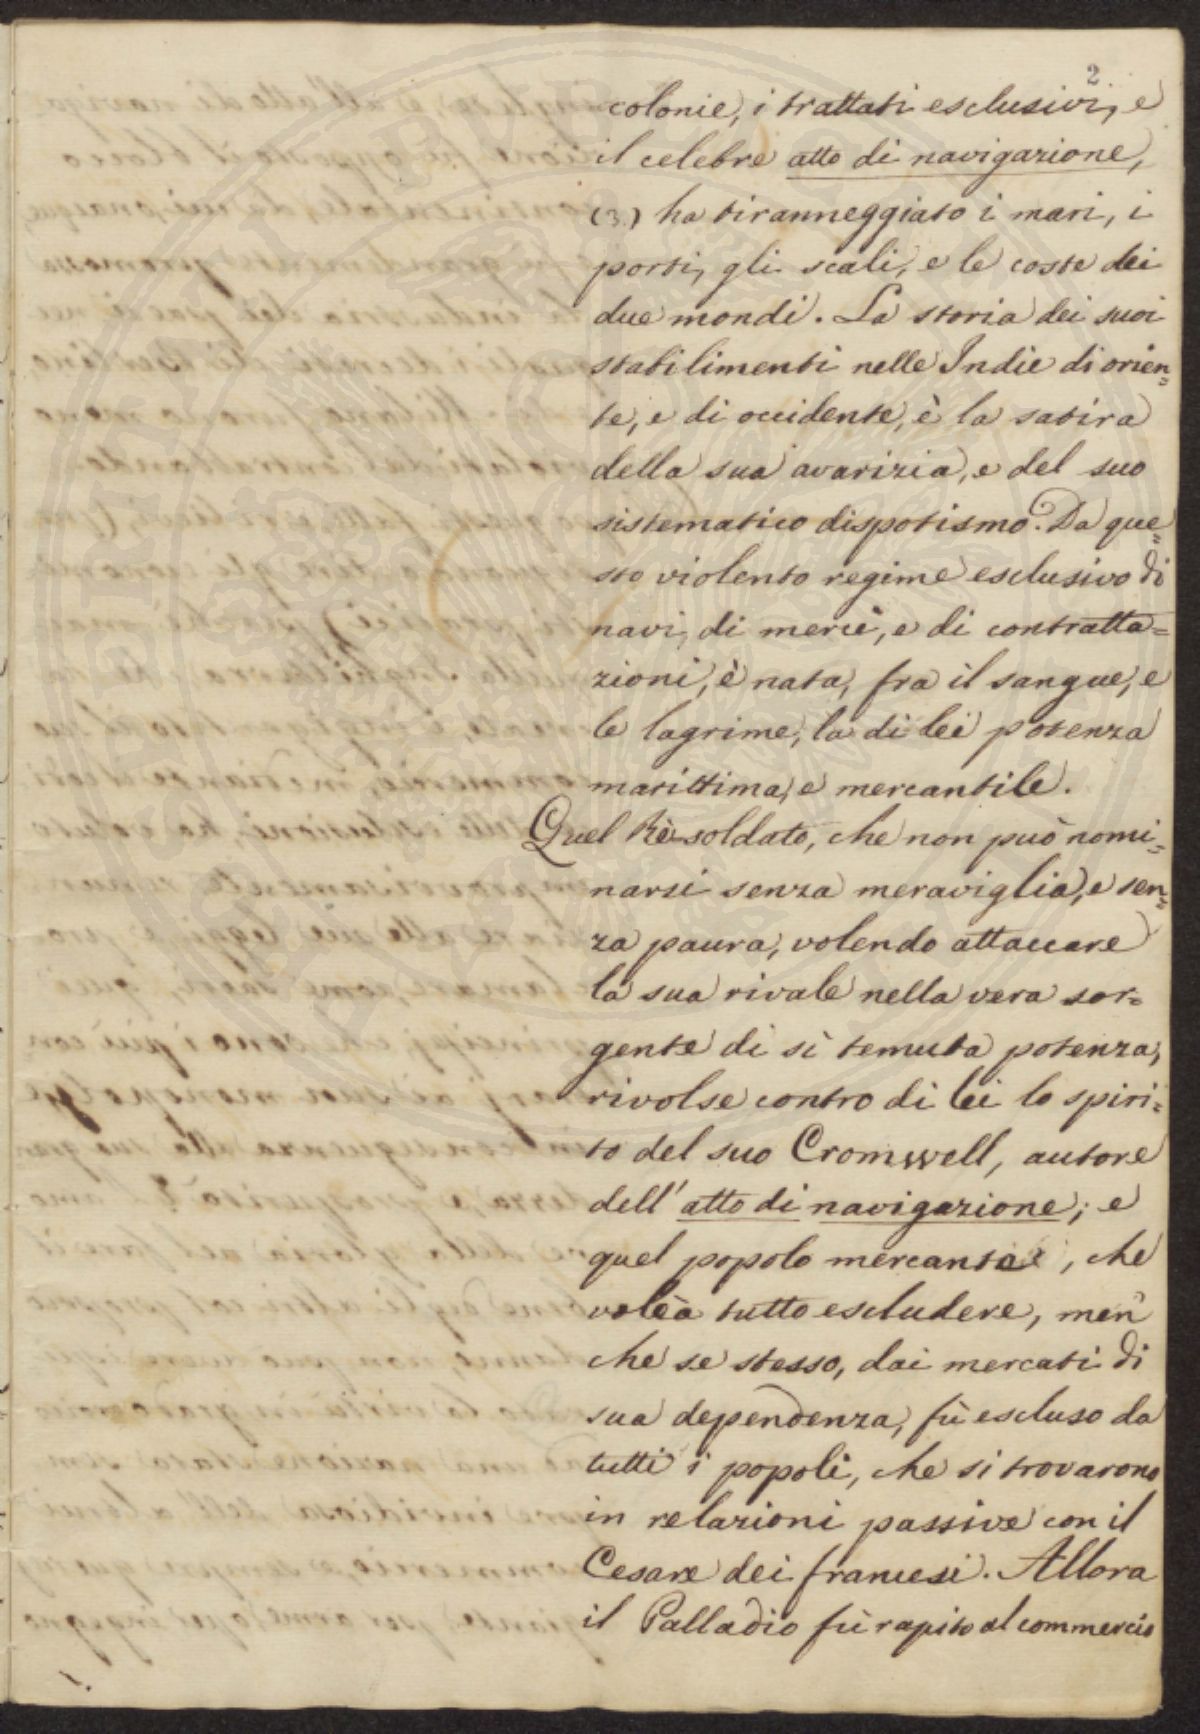 2
colonie, i trattati esclusivi, e
il celebre atto di navigazione,
(3.) ha tiranneggiato i mari, i
porti, gli scali, e le coste dei
due mondi. La storia dei suoi
stabilimenti nelle Indie di orien=
te, e di occidente, è la satira
della sua avarizia, e del suo
sistematico dispotismo. Da que=
sto violento regime esclusivo di
navi, di merci, e di contratta=
zioni, è nata, fra il sangue, e
le lagrime, la di lei potenza
marittima, e mercantile.
Quel Rè soldato, che non può nomi=
narsi senza meraviglia, e sen=
za paura, volendo attaccare
la sua rivale nella vera sor=
gente di sì temuta potenza,
rivolse contro di lei lo spiri=
to del suo Cromwell, autore
dell' atto di navigazione; e
quel popolo mercante, che
volea tutto escludere, men
che se stesso, dai mercati di
sua dependenza, fù escluso da
tutti i popoli, che si trovarono
in relazioni passive con il
Cesare dei francesi. Allora
il Palladio fù rapito al commercio